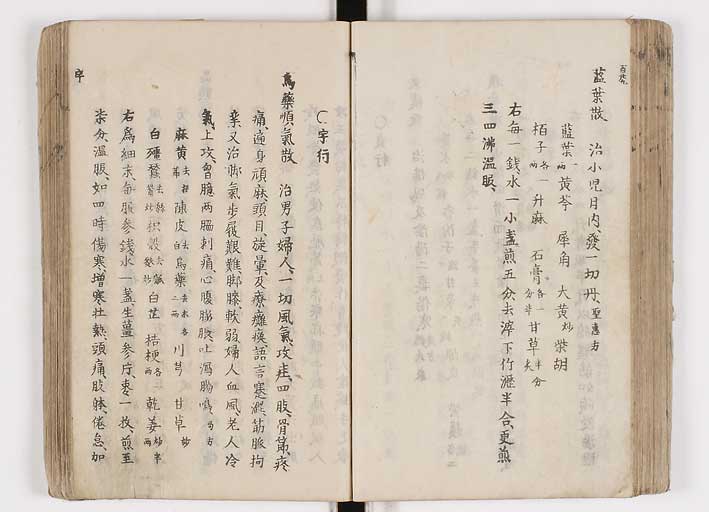 藍葉散　治小児月内發一切丹、至惠方
藍葉一兩　黄芩　犀角　大黄炒　柴胡
栢子各一兩　升麻　石膏各一分半　甘草半分
右每一錢、水一小盞煎五分、去滓下竹瀝半合、更煎
三四沸温服、
〇宇行
烏藥順氣散　治男子婦人、一切風氣攻疰、四肢骨節、疼
痛、遍身頑麻、頭目旋暈、及療癱瘓、語言蹇澀、筋脈拘
攣、又治脚氣、步履艱難、脚膝軟弱、婦人血風、老人冷
氣、上攻、胷臆兩脇刺痛、心腹膨脹、吐瀉腸鳴、局方
麻黄去節　陳皮去白　烏藥去木各二兩　川芎　甘草炒
白殭蠶去絲觜炒　枳殻去瓤麩炒　白芷　桔梗各一兩　乾姜炒半兩
右爲細末、每服參錢、水一盞、生薑參片、棗一枚、煎至
柒分温服、如四時傷寒、增寒壯熱、頭痛、肢體倦怠、加
宇